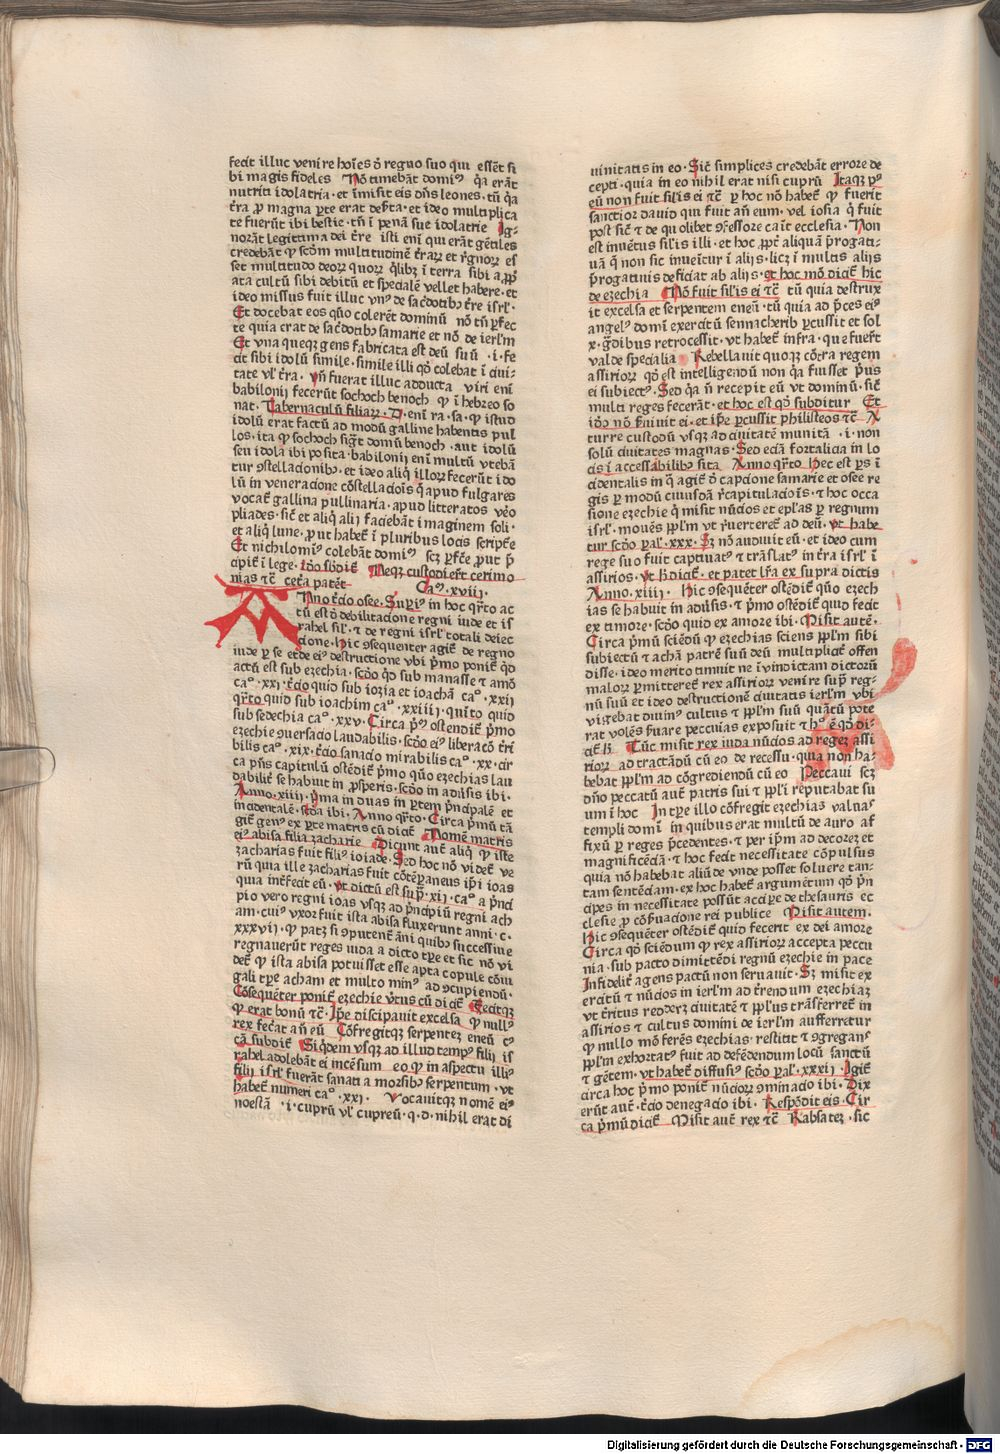 fecit illuc venire hoı̄es d̄ regno suo qui essēt si
bi magis fideles Nō timebāt domiꝰ q̄a erāt
nutriti idolatria · et īmisit eis dn̄s leones · tū q̄a
t̄ra ꝓ magna ꝑte erat deꝑta · et ideo multiplica
te fuerūt ibi bestie · tū ī penā sue idolatrie Ig-
norāt legittima dei t̄re isti enī qui erāt gētiles
credebāt ꝙ scd̄m multitudinē t̄raꝝ et r̄gnoꝝ es
set multitudo deoꝝ quoꝝ q̄libꝫ ī terra sibi a ꝓꝑ
ata cultū sibi debitū et specialē vellet habere · et
ideo missus fuit illuc vnꝰ de sac̄dotibꝰ t̄re isrl̄ ·
Et docebat eos qūo colerēt dominū nō tn̄ ꝑfec
te quia erat de sac̄dotibꝰ samarie et nō de ierl̄m
Et vna queqꝫ gens fabricata est deū suū · i · fe
cit sibi idolū simile · simile illi qd̄ colebat ī ciui-
tate vl̄ t̄ra · vn̄ fuerat illuc adducta viri enī
babilonij fecerūt sochoch benoch ꝙ ī hebreo so
nat · Tabernaculū filiaꝝ · D · enī ra · sa · ꝙ istud
idolū erat factū ad modū galline habentis pul
los · ita ꝙ sochoch sigt̄ domū benoch · aut idolū
seu idola ibi posita · babilonij enī multū vtebā
tur ꝯstellacionibꝰ · et ideo aliq̄ illoꝝ fecerūt ido
lū in veneracione cōstellacioīs q̄ apud fulgares
vocat̄ gallina pullinaria · apud litteratos v̄o
pliades · sic̄ et aliq̄ alij faciebāt imaginem soli ·
et aliq̄ lune · ꝓut habet̄ ī pluribus locis script̄e
Et nichilomiꝰ colebāt domiꝰ scꝫ ꝑfc̄e ꝓut p̄
cipit̄ ī lege · id̄o sb̄dit̄ Neqꝫ custodier̄t cerimo
nias tc̄ cet̄a patēt Caᵐ · xviij ·
ANno t̄cio osee · Supiꝰ in hoc q̄rto ac
tū est d̄ debilitacione regni iude et is
rahel sil̄ · ⁊ de regni isrl̄ totali deiec
cione · hic ꝯsequenter agit̄ de regno
iude ꝑ se et de eiꝰ destructione vbi p̄mo ponit̄ qd̄
actū est sub ezechia · scd̄o qd̄ sub manasse ⁊ amō
caᵒ · xxi · t̄cio quid sub iozia et ioachā caᵒ · xxij
q̄rto quid sub ioachim caᵒ · xxiiij · quīto quid
sub sedechia caᵒ · xxv · Circa p̄ꝰ ostendit̄ p̄mo
ezechie ꝯuersacio laudabilis · scd̄o eiꝰ liberacō t̄ri
bilis caᵒ · xix · t̄cio sanacio mirabilis caᵒ · xx · cir
ca pn̄s capitulū ostēdit̄ p̄mo quō ezechias lau
dabilit̄ se habuit in ꝓsperis · scd̄o in adūsis ibi ·
Anno · xiiij · p̄ma in duas in ꝑtem pn̄cipalē et
incidentalē · scd̄a ibi · Anno q̄rto · Circa p̄mū tā
git̄ genꝰ ex ꝑte matris cū dicit̄ Nomē matris
eiꝰ abisa filia zacharie Dicunt aut̄ aliq̄ ꝙ iste
zacharias fuit filiꝰ ioiade · Sed hoc nō videt̄ ve
rū quia ille zacharias fuit cōtēꝑaneus ip̄i ioas
quia int̄fecit eū · vt dictū est sup̄ · xij · caᵒ a p̄nci
pio vero regni ioas vsqꝫ ad p̄ncipiū regni ach
am · cuiꝰ vxor fuit ista abisa fluxerunt anni · c ·
xxxvij · ꝙ patꝫ si ꝯputent̄ āni quibꝰ successiue
regnauerūt reges iuda a dicto tꝑe et sic nō vi
det̄ ꝙ ista abisa potuisset esse apta copule cōiu
gali tꝑe acham et multo minꝰ ad ꝯcipiendū ·
Cōsequēter ponit̄ ezechie v̄tus cū dicit̄ Fecitqꝫ
ꝙ erat bonū tc̄ · Ip̄e discipauit excelsa ꝙ nullꝰ
rex fec̄at an̄ eū Cōfregitqꝫ serpentez eneū cꝰ
cā subdit̄ Siq̄dem vsqꝫ ad illud tempꝰ filij is
rahel adolebāt ei incēsum eo ꝙ in aspectu illiꝰ
filij isrl̄ fuerāt sanati a morsibꝰ serpentum · vt
habet̄ numeri caᵒ · xxj · Vocauitqꝫ nomē eiꝰ
noestā · i · cuprū vl̄ cupreū · q · d · nihil erat di
uinitatis in eo · Sic̄ simplices credebāt errore de
cepti · quia in eo nihil erat nisi cuprū Itaqꝫ pꝰ
eū non fuit sil̄is ei tc̄ ꝑ hoc nō habet̄ ꝙ fuerit
sanctior dauid qui fuit an̄ eum · vel iosia q̄ fuit
post sic̄ ⁊ de quolibet ꝯfessore caīt ecclesia · Non
est inuētus sil̄is illi · et hoc ꝓpt̄ aliquā p̄rogati-
uā q̄ non sic inueīt̄ur ī alijs · licꝫ ī multis alijs
p̄rogatiuis deficiat ab alijs · et hoc mō dicit̄ hic
de ezechia Nō fuit sil̄is ei tc̄ tū quia destrux
it excelsa et serpentem eneū · tū quia ad p̄ces eiꝰ
angelꝰ domī exercitū sennacherib ꝑcussit et sol
x · gͣdibus retrocessit · vt habet̄ infra · que fuer̄t
valde specialia Rebellauit quoqꝫ cōtra regem
assirioꝝ qd̄ est intelligendū non q̄a fuisset p̄us
ei subiectꝰ · Sed q̄a n̄ recepit eū vt dominū · sic̄
multi reges fecerāt · et hoc est qd̄ subditur Et
id̄o nō s̄uiuit ei · et ip̄e ꝑcussit philisteos tc̄ A
turre custodū vsqꝫ ad ciuitatē munitā · i · non
solū ciuitates magnas · Sed eciā fortalicia in lo
cis ī accessabilibꝰ sita Anno q̄rto Hec est ꝑs ī
cidentalis in q̄ agit̄ d̄ capcione samarie et osee re
gis ꝑ modū cuiusdā r̄capitulacioīs · ⁊ hoc occa
sione ezechie q̄ misit nūcios et ep̄las ꝑ regnum
isrl̄ · mouēs ppl̄m vt r̄uerteret̄ ad deū · vt habe
tur scd̄o ꝑal̄ · xxx · Sꝫ nō audiuit eū · et ideo cum
rege suo fuit captiuatꝰ ⁊ trāslatꝰ in t̄ra isrl̄ ī
assirios · vt h̄ dicit̄ · et patet lr̄a ex supra dictis
Anno · xiiij · Hic ꝯsequēter ostēdit̄ qūo ezech
ias se habuit in adūsis · ⁊ p̄mo ostēdit̄ quid fecit
ex timore · scd̄o quid ex amore ibi · Misit autē ·
Circa p̄mū sciēdū ꝙ ezechias sciens ppl̄m sibi
subiectū ⁊ achā patrē suū deū multiplicit̄ offen
disse · ideo merito timuit ne ī vindictam dictorū
maloꝝ ꝑmitteret̄ rex assirioꝝ venire suꝑ reg-
nū suū et ideo destructionē ciuitatis ierl̄m vbi
vigebat diuinꝰ cultus ⁊ ppl̄m suū quātū pote
rat volēs s̄uare peccuias exposuit ⁊ hᵒ ē qd̄ di-
cit̄ h̄ Tūc misit rex iuda nūcios ad regeꝫ assi
rioꝝ ad tractādū cū eo de recessu · quia non ha-
bebat ppl̄m ad cōgrediendū cū eo Peccaui scꝫ
dn̄o peccatū aut̄ patris sui ⁊ ppl̄i reputabat su
um ī hoc In tꝑe illo cōfregit ezechias valuas
templi domī in quibus erat multū de auro af
fixū ꝑ reges p̄cedentes · ⁊ per ip̄m ad decorez et
magnificēciā · ⁊ hoc fecit necessitate cōpulsus
quia nō habebat aliūde vnde posset soluere tan-
tam sentēciam · ex hoc habet̄ argumētum qd̄ p̄n
cipes in necessitate possūt accipe de thesauris ec
clesie ꝓ cōs̄uacione rei publice Misit autem ·
Hic ꝯsequēter ostēdit̄ quid fecerit ex dei amore
Circa qd̄ sciendum ꝙ rex assirioꝝ accepta peccu
nia · sub pacto dimittēdi regnū ezechie in pace
Infidelit̄ agens pactū non seruauit · Sꝫ misit ex
ercitū ⁊ nūcios in ierl̄m ad t̄rendum ezechiaꝫ
vt t̄ritus redderꝫ ciuitatē ⁊ ppl̄us trāsferret̄ in
assirios ⁊ cultus domini de ierl̄m aufferretur
ꝙ nullo mō ferēs ezechias · restitit ⁊ ꝯgregans
ppl̄m exhortatꝰ fuit ad defēdendum locū sanctū
⁊ gētem · vt habet̄ diffusiꝰ scd̄o ꝑal̄ · xxxij · Igit̄
circa hoc p̄mo ponit̄ nūcioꝝ ꝯminacio ibi · Dix
erūt aut̄ · t̄cio denegacio ibi · Respōdit eis · Cir
ca p̄mū dicit̄ Misit aut̄ rex tc̄ Rabsatez · sic
Digitalisierung gefördert durch die Deutsche Forschungsgemeinschaft - DFG